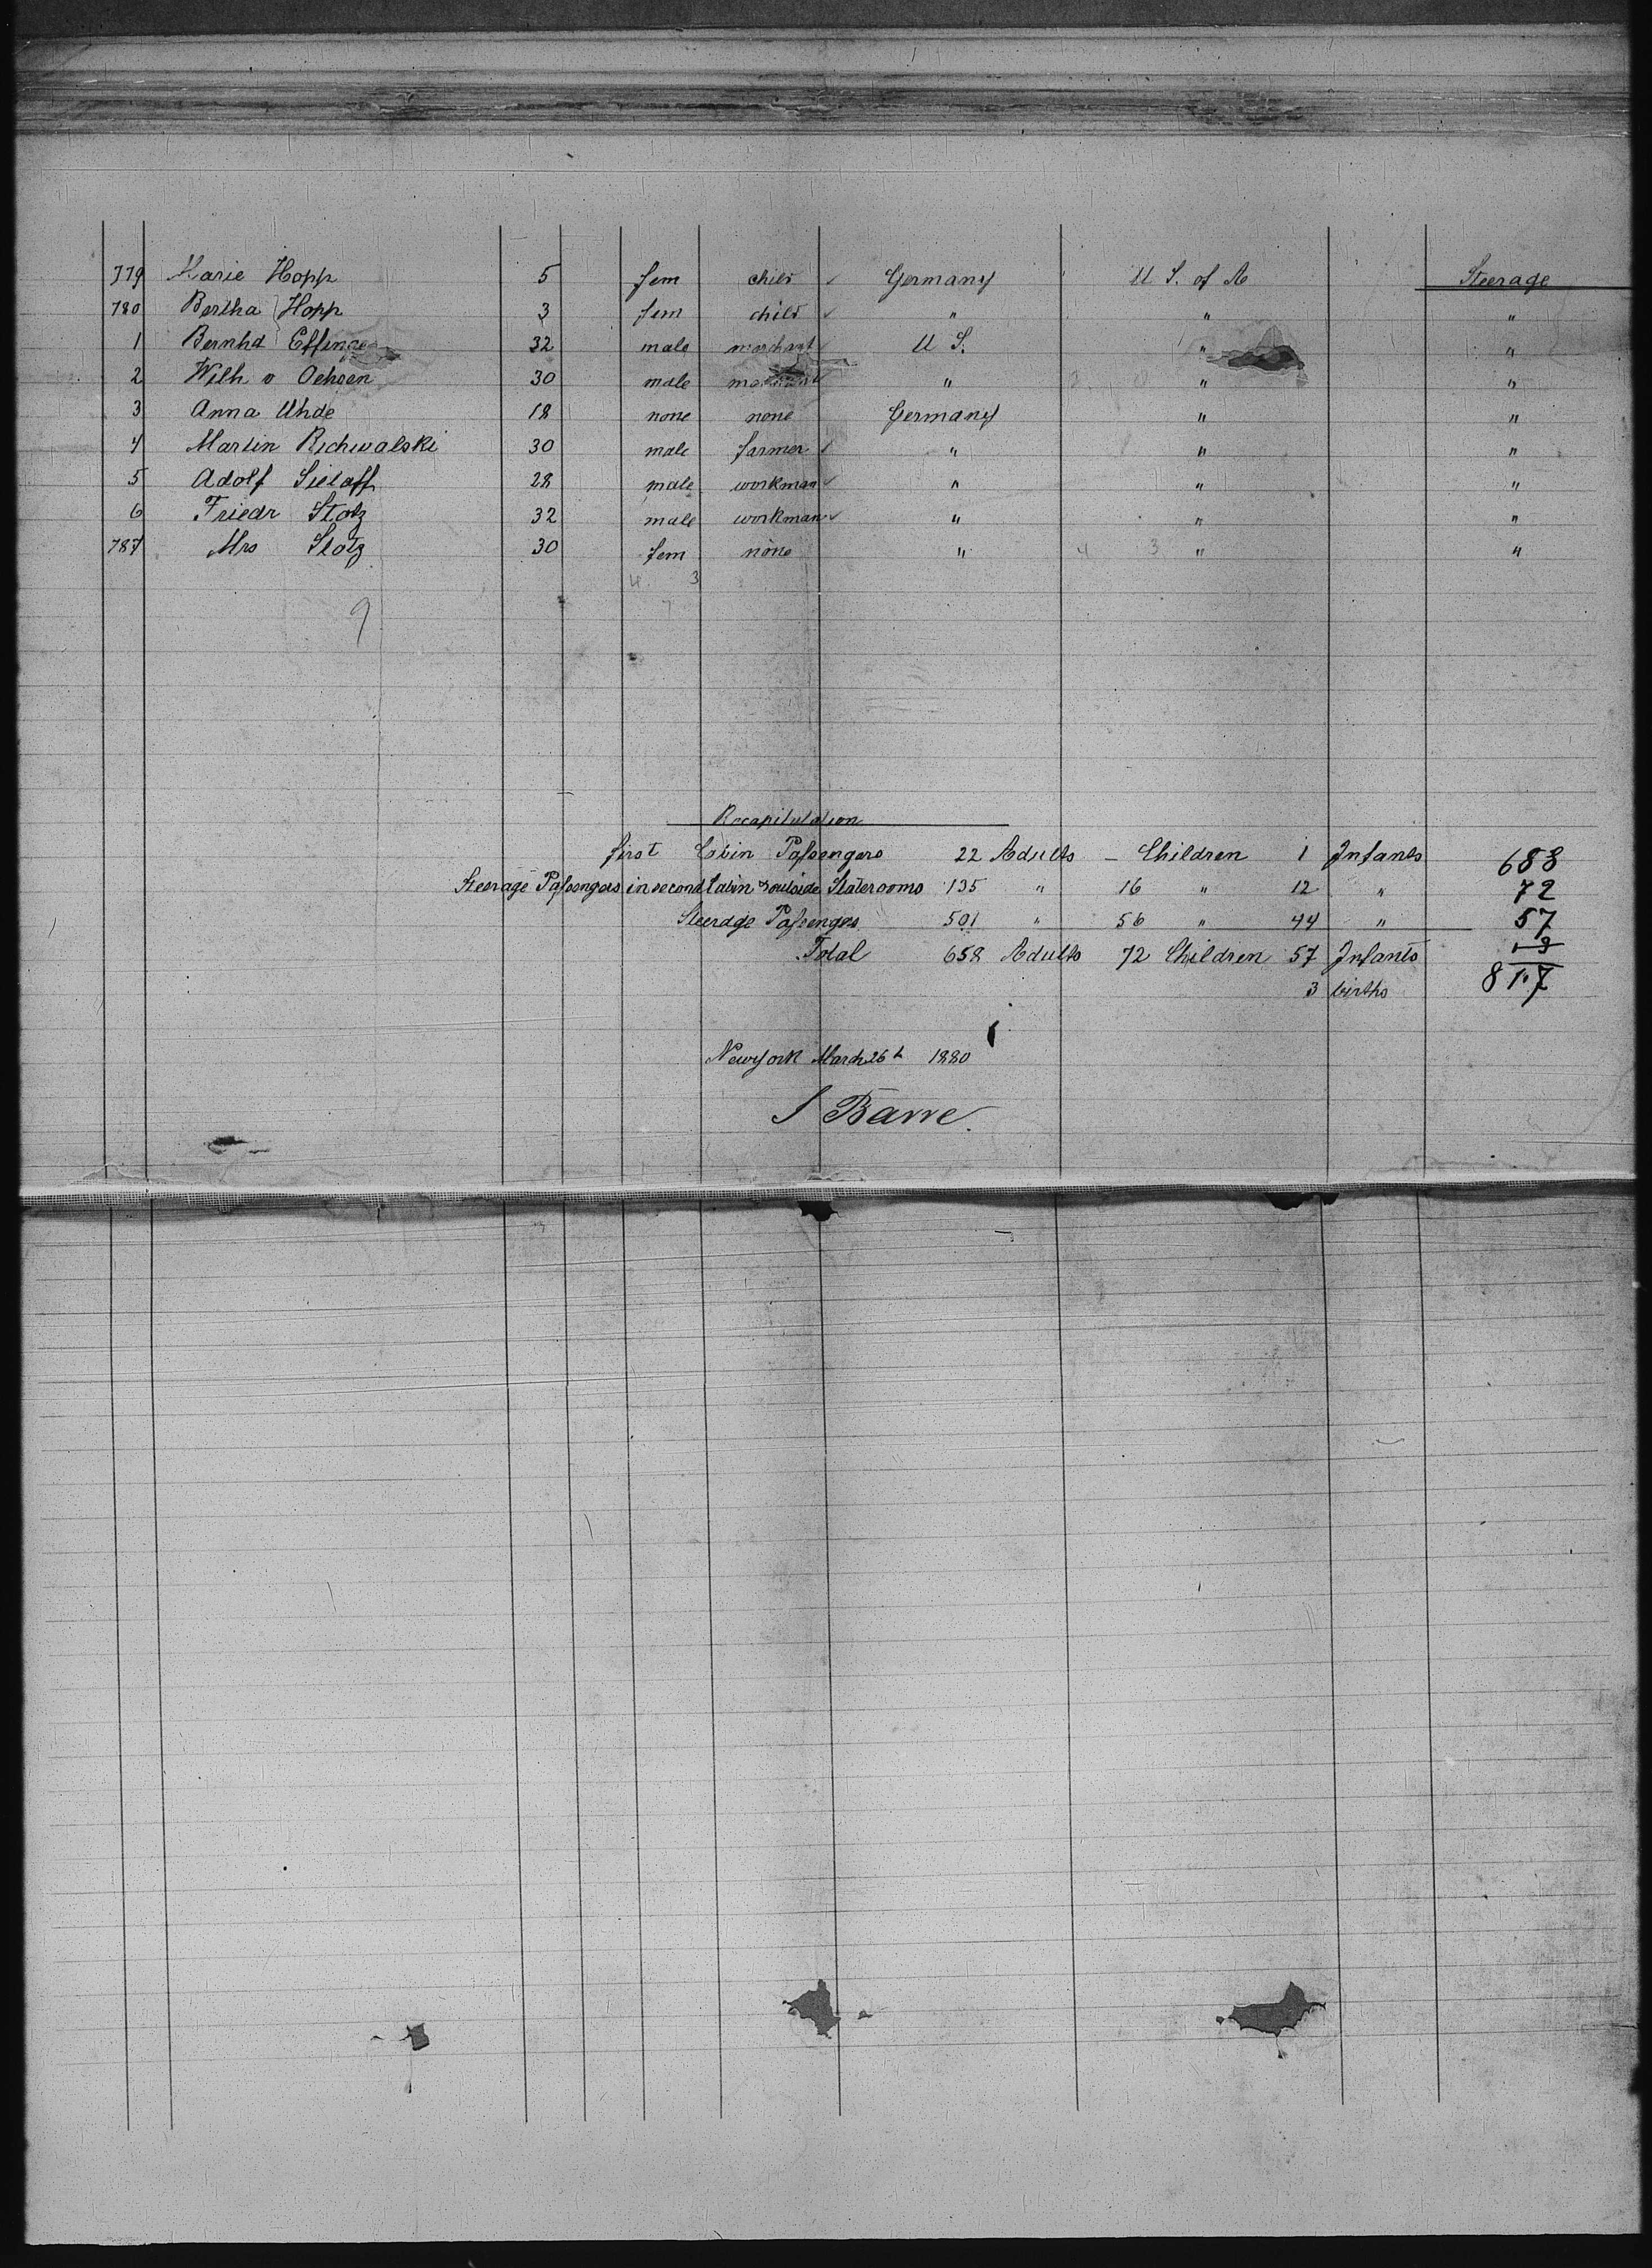 779 Marie Hopp 5 fem child ✓ Germany U S. of A Steerage
780 Bertha Hopp 3 fem child ✓ " " "
1 Bernhd Effinger 32 male merchant ✓ U S. " "
2 Wilh v Oehsen 30 male " " "
3 Anna Uhde 18 none none Germany " "
4 Martin Richwalski 30 male farmer ✓ " " "
5 Adolf Sielaff 28 male workman ✓ " " "
6 Friedr Stolz 32 male workman ✓ " " "
787 Mrs Stolz 30 fem none " 4 3 " "
4 3
9 7
Recapitulation
first Cabin Passengers 22 Adults – Children 1 Infants 688
Steerage Passengers in second Cabin & outside Staterooms 135 " 16 " 12 " 72
Steerage Passengers 501 " 56 " 44 " 57
Total 658 Adults 72 Children 57 Infants
3 births 817
Newyork March 26th 1880
J Barre.